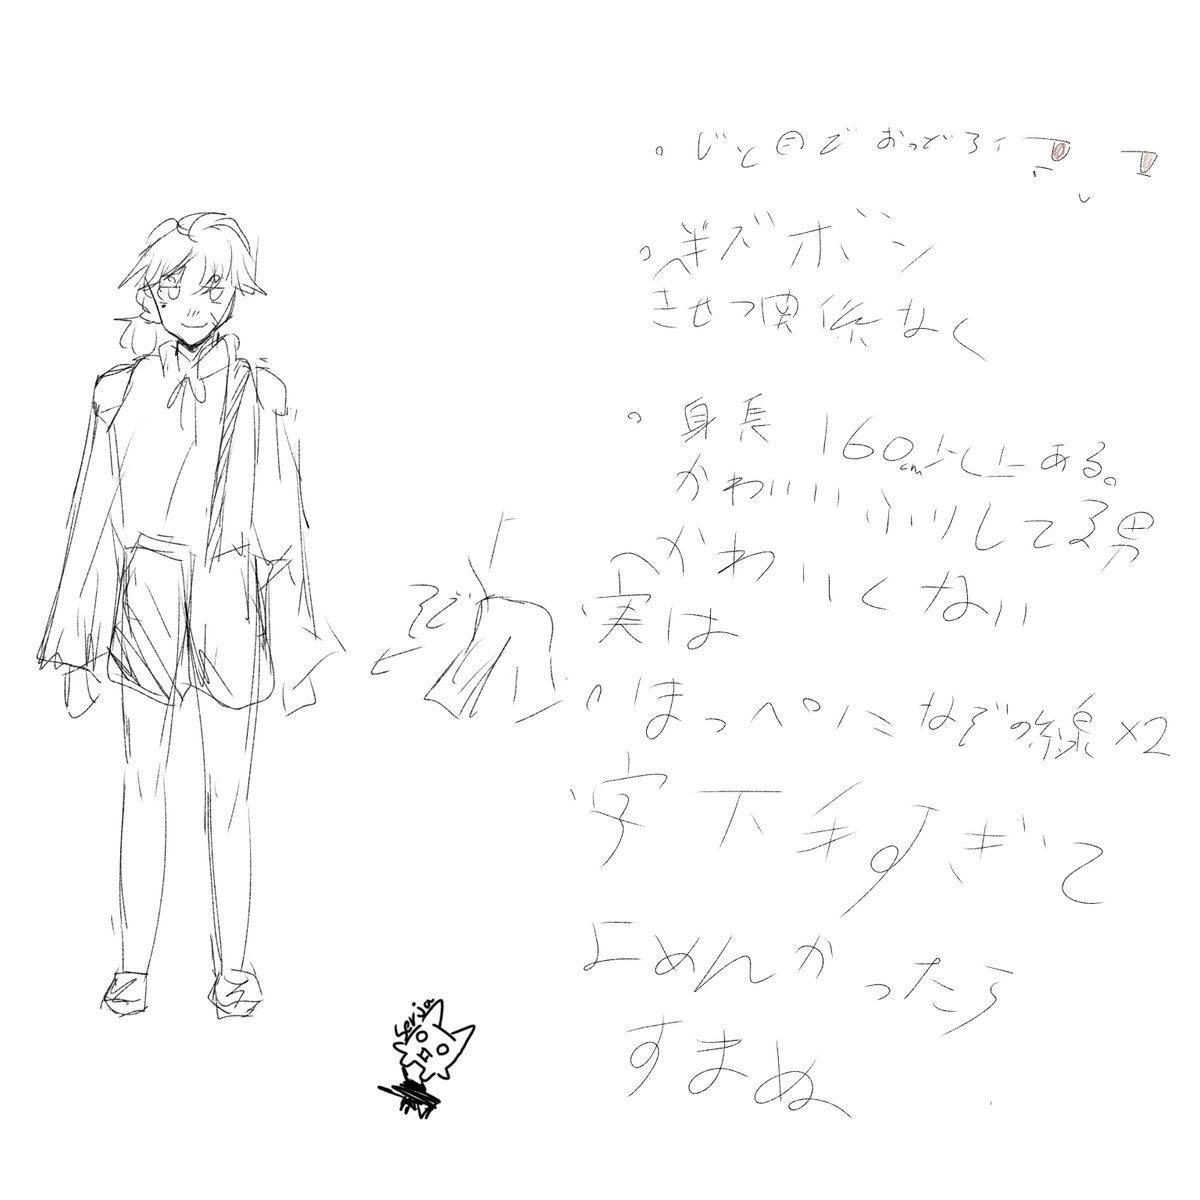 。じと目でおっどろイ
。半ズボン
きせつ関係なく
。身長 160cm以上ある。
かわいいふりしてる男
へかわいくない
実は
そで
。ほっぺになぞの線×2
字下手すぎて
よめんかったら
すまぬ
Serja